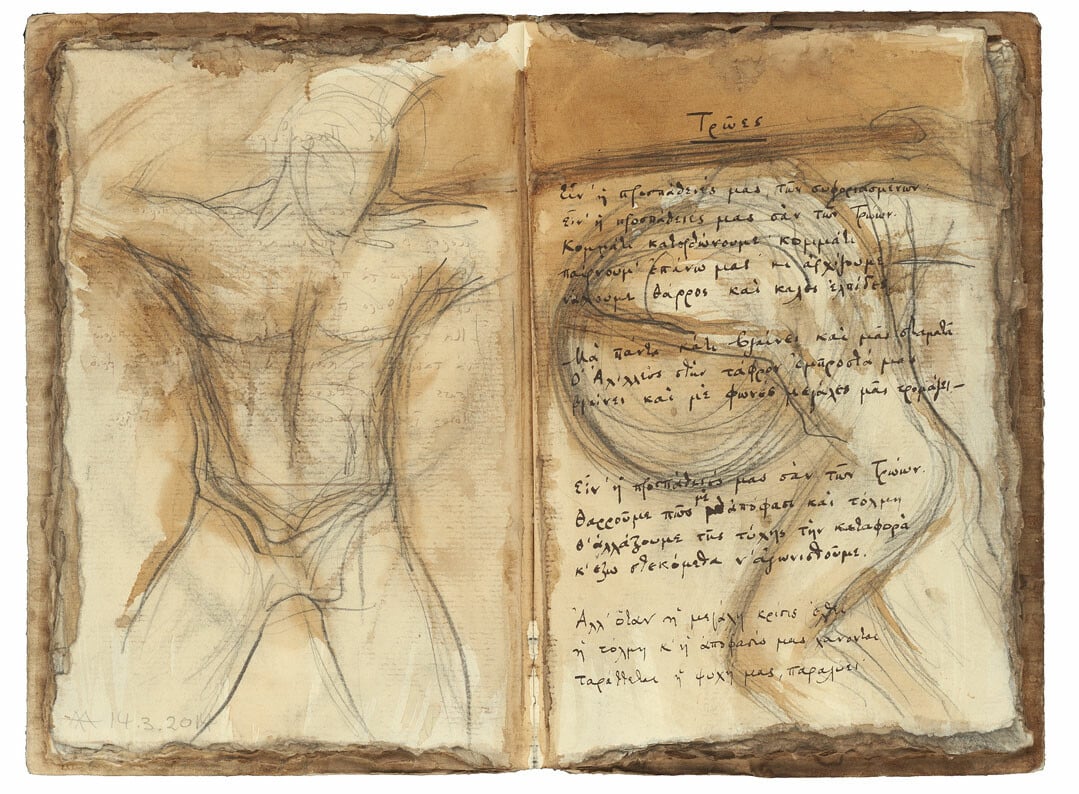 Τρῶες
Εἶν' ἡ προσπάθειές μας, τῶν συφοριασμένων·
Εἶν' ἡ προσπάθειές μας σὰν τῶν Τρώων.
Κομμάτι κατορθώνουμε· κομμάτι
παίρνουμ' ἐπάνω μας· κι ἀρχίζουμε
νἄχουμε θάρρος καὶ καλὲς ἐλπίδες.
Μὰ πάντα κάτι βγαίνει καὶ μᾶς σταματᾶ
Ὁ Ἀχιλλεὺς στὴν τάφρον ἐμπροστά μας
βγαίνει καὶ μὲ φωνὲς μεγάλες μᾶς τρομάζει—
Εἶν' ἡ προσπάθειές μας σὰν τῶν Τρώων.
Θαρροῦμε πῶς μὲ ἀπόφασι καὶ τόλμη
θ' ἀλλάξουμε τῆς τύχης τὴν καταφορά
κ' ἔξω στεκόμεθα ν' ἀγωνισθοῦμε.
Ἀλλ' ὅταν ἡ μεγάλη κρίσις ἔλθει
ἡ τόλμη κ' ἡ ἀπόφασίς μας χάνονται
ταράττεται ἡ ψυχή μας, παραλύει
14.3.201